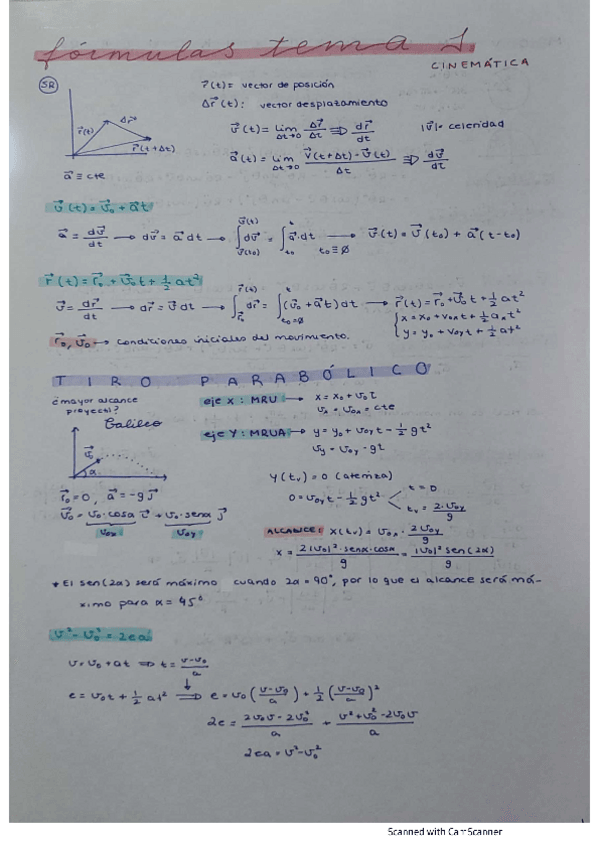 fórmulas tema 1.
CINEMÁTICA
SR
r⃗(t) = vector de posición
Δr⃗(t): vector desplazamiento
v⃗(t) = lim Δt→0 Δr⃗/Δt ⇒ dr⃗/dt |v⃗| = celeridad
a⃗(t) = lim Δt→0 (v⃗(t+Δt) - v⃗(t))/Δt ⇒ dv⃗/dt
r⃗(t) Δr⃗ r⃗(t+Δt)
a⃗ ≡ cte
v⃗(t) = v⃗₀ + a⃗t
a⃗ = dv⃗/dt → dv⃗ = a⃗ dt → ∫_{v⃗(t₀)}^{v⃗(t)} dv⃗ = ∫_{t₀}^{t} a⃗·dt t₀ ≡ ∅ → v⃗(t) = v⃗(t₀) + a⃗(t-t₀)
r⃗(t) = r⃗₀ + v⃗₀t + ½ at²
v⃗ = dr⃗/dt → dr⃗ = v⃗ dt → ∫_{r⃗₀}^{r⃗(t)} dr⃗ = ∫_{t₀=∅}^{t} (v⃗₀ + a⃗t) dt → r⃗(t) = r⃗₀ + v⃗₀t + ½ at²
{ x = x₀ + v₀ₓt + ½ aₓt²
r⃗₀, v⃗₀ → condiciones iniciales del movimiento. { y = y₀ + v₀yt + ½ at²
TIRO PARABÓLICO
¿mayor alcance
proyectil?
Galileo
eje X: MRU → x = x₀ + v₀t
vₓ = v₀ₓ = cte
eje Y: MRUA → y = y₀ + v₀yt - ½ gt²
vy = v₀y - gt
v⃗₀ α
r⃗₀ = 0, a⃗ = -g j⃗
v⃗₀ = v₀·cosα i⃗ + v₀·senα j⃗
v₀ₓ v₀y
Y(tᵥ) = 0 (aterriza)
0 = v₀yt - ½ gt² t = 0
tᵥ = 2·v₀y/g
ALCANCE: x(tᵥ) = v₀ₓ · 2v₀y/g
x = 2|v₀|²·senα·cosα/g = |v₀|² sen(2α)/g
* El sen(2α) será máximo cuando 2α = 90°, por lo que el alcance será má-
ximo para α = 45°
v² - v₀² = 2ea
v = v₀ + at ⇒ t = (v-v₀)/a
e = v₀t + ½ at² ⇒ e = v₀((v-v₀)/a) + ½((v-v₀)/a)²
2e = (2v₀v - 2v₀²)/a + (v² + v₀² - 2v₀v)/a
2ea = v² - v₀²
Scanned with CamScanner